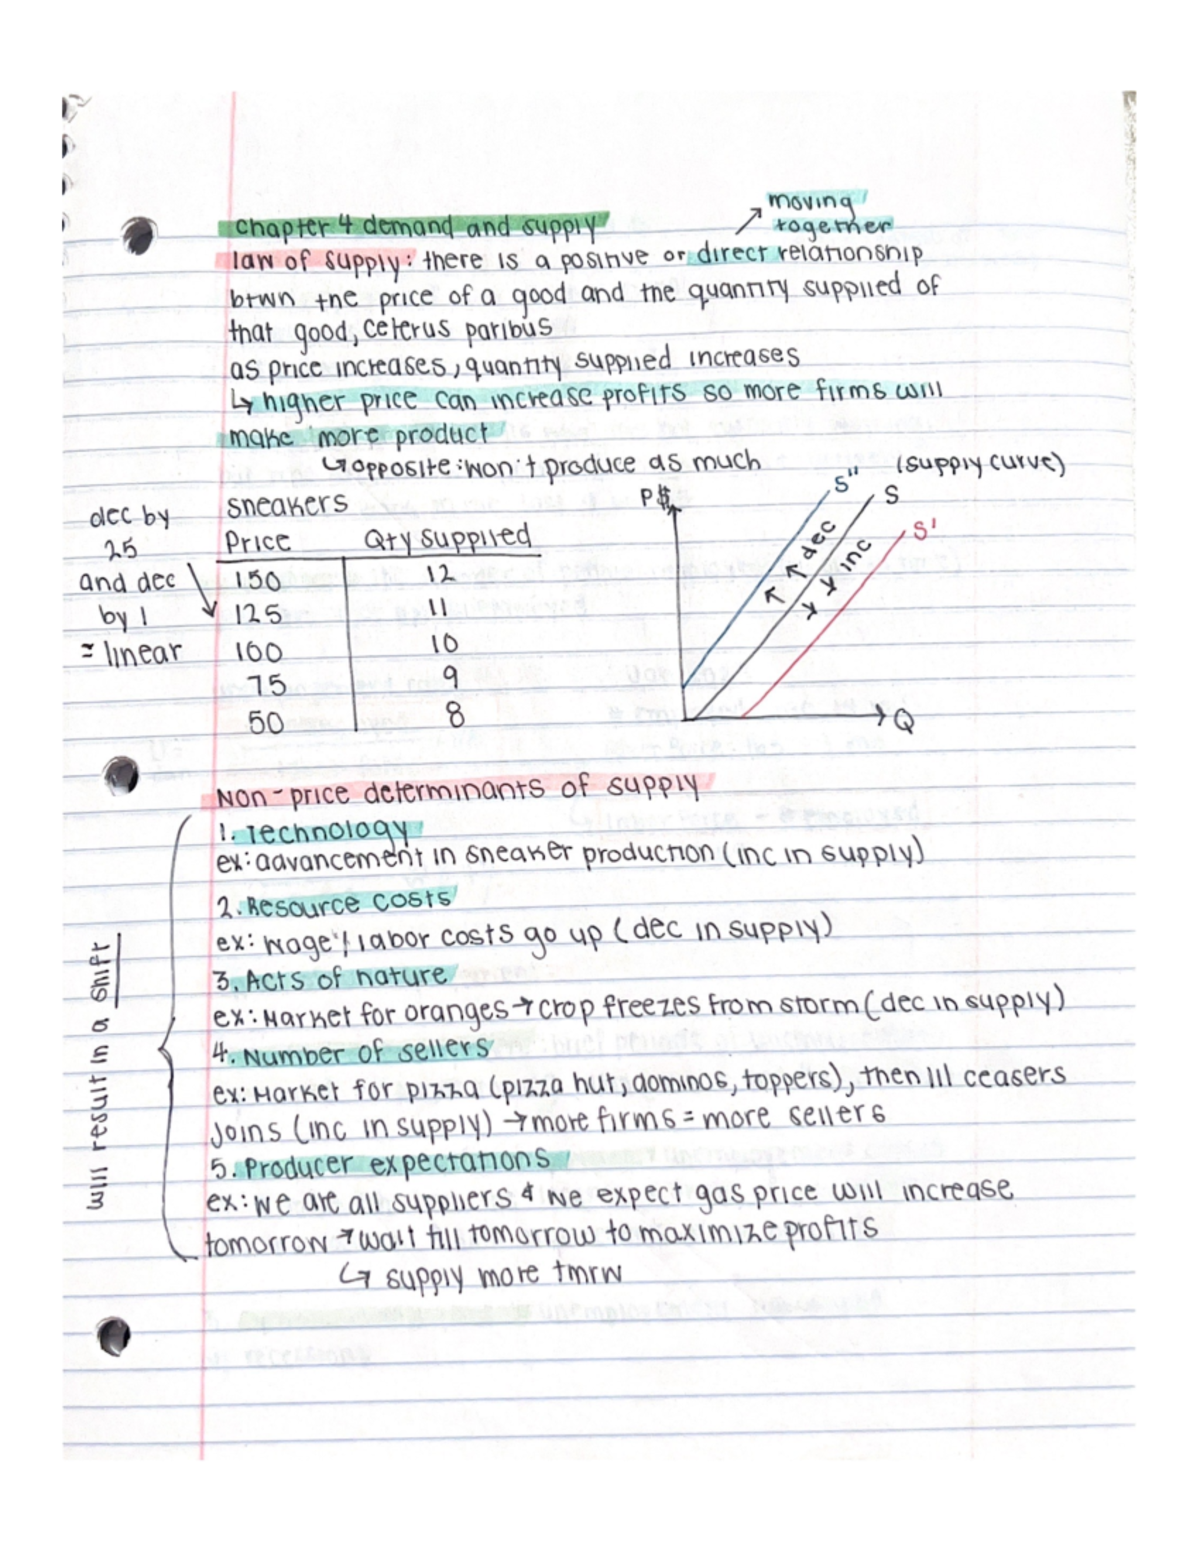 moving
together
Chapter 4 demand and supply
law of supply: there is a positive or direct relationship
btwn the price of a good and the quantity supplied of
that good, ceterus paribus
as price increases, quantity supplied increases
↳ higher price can increase profits so more firms will
make more product
↳ opposite: won't produce as much
dec by
25
and dec
by 1
= linear
sneakers
Price Qty supplied
150 12
125 11
100 10
75 9
50 8
P$ S" S (supply curve)
S'
dec
inc
Q
Non-price determinants of supply
will result in a shift
1. Technology
ex: advancement in sneaker production (inc in supply)
2. Resource costs
ex: wage / labor costs go up (dec in supply)
3. Acts of nature
ex: Market for oranges → crop freezes from storm (dec in supply)
4. Number of sellers
ex: Market for pizza (pizza hut, dominos, toppers), then lil ceasers
joins (inc in supply) → more firms = more sellers
5. Producer expectations
ex: we are all suppliers & we expect gas price will increase
tomorrow → wait till tomorrow to maximize profits
↳ supply more tmrw